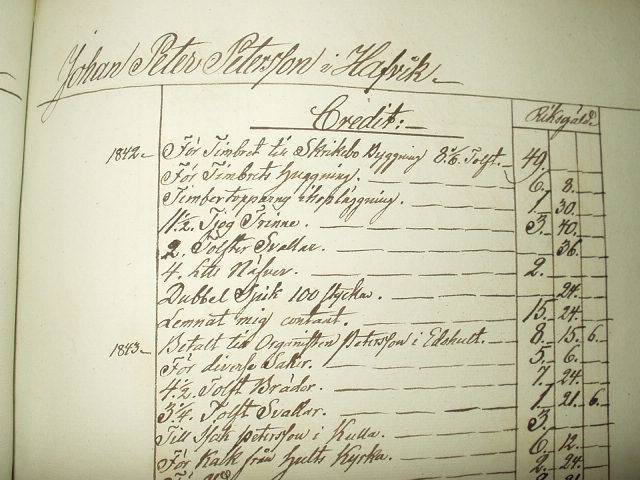 Johan Peter Petersson i Hafvik.
Credit:
Riksgälds
1842 För Timbret til Skrikebo Byggning 8 1/6 Tolft. 49.
För Timbrets huggning. 6. 8.
Timbertoppning ihopläggning. 1. 30.
11 1/2 Tjog Trinne. 3. 40.
2. Tolfter Svallar. 36.
4. Näfver. 2.
Dubbel Spik 100 stycka. 24.
Lemnat mig contant. 15. 24.
1843 Betalt till Organisten Petersson i Edshult. 8. 15. 6.
För diverse Saker. 5. 6.
4 1/2 Tolft Bräder. 7. 24.
3/4 Tolft Svallar. 1. 21. 6.
Till Petersson i Kulla. 3.
För Kalk från Hults Kyrka 6. 12.
För 2. 24.